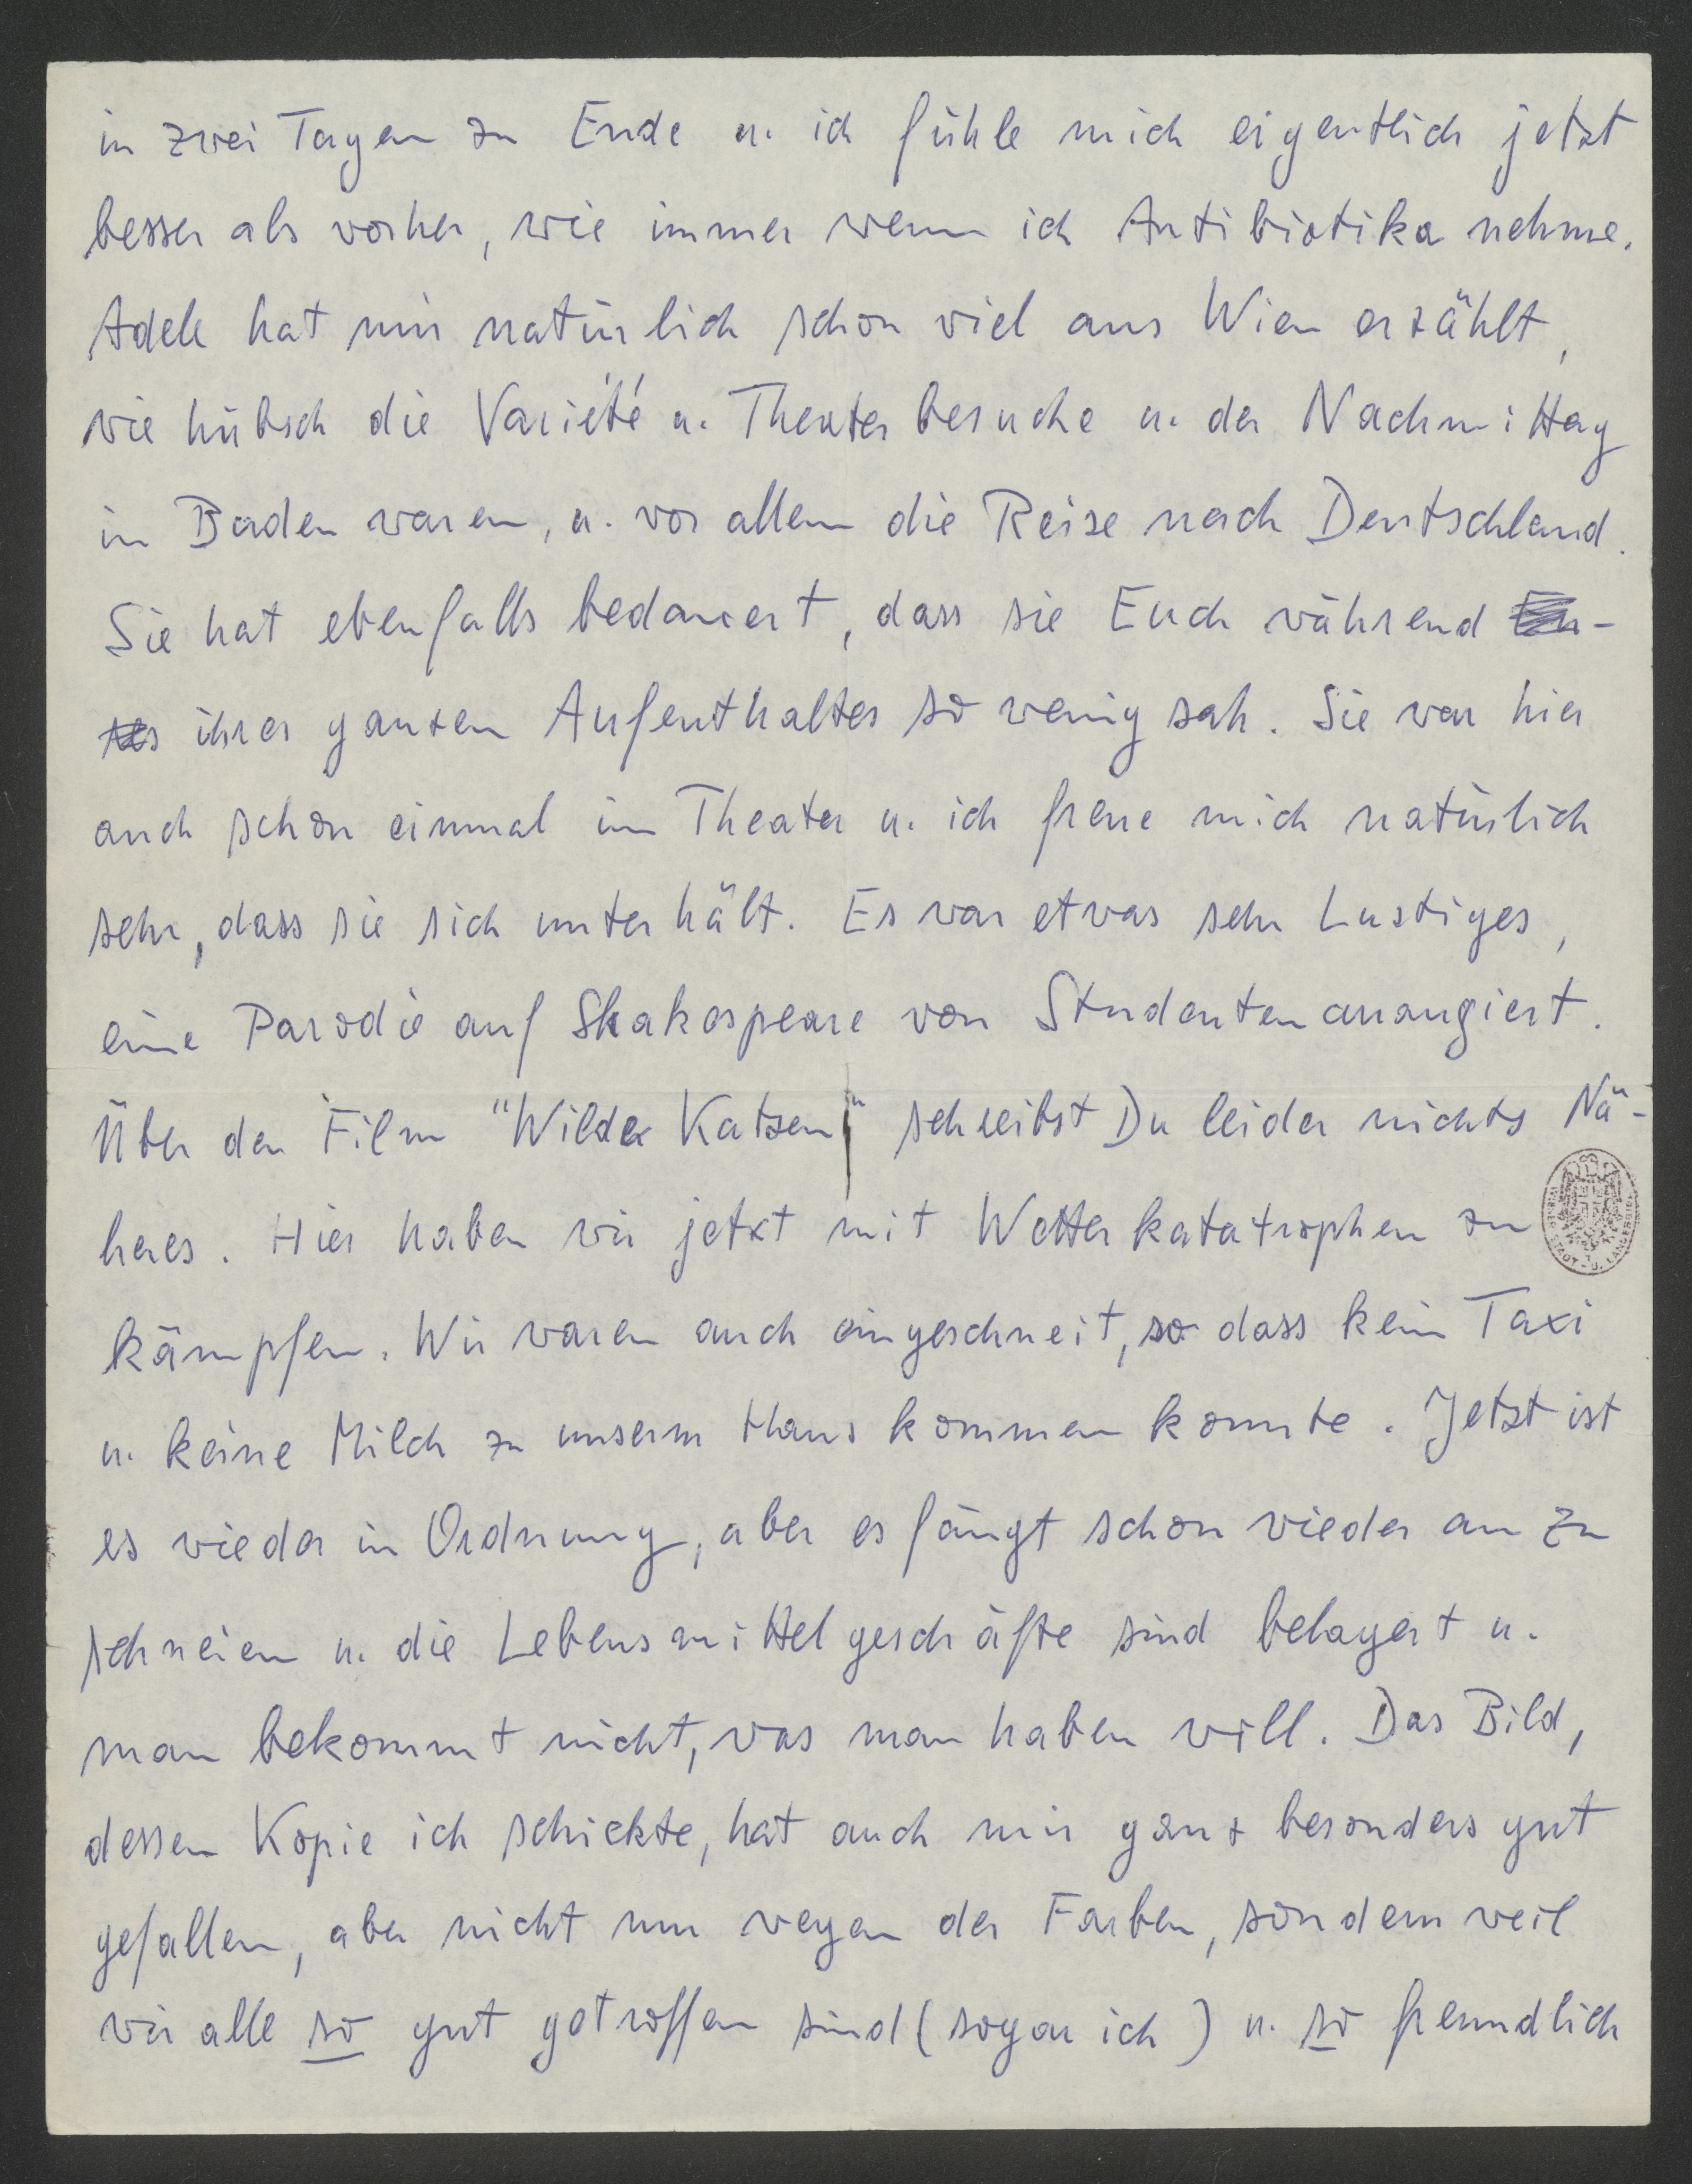 in zwei Tagen zu Ende u. ich fühle mich eigentlich jetzt
besser als vorher, wie immer wenn ich Antibiotika nehme.
Adele hat mir natürlich schon viel aus Wien erzählt,
wie hübsch die Variété u. Theaterbesuche u. der Nachmittag
in Baden waren, u. vor allem die Reise nach Deutschland.
Sie hat ebenfalls bedauert, dass sie Euch während
ihres ganzen Aufenthaltes so wenig sah. Sie war hier
auch schon einmal im Theater u. ich freue mich natürlich
sehr, dass sie sich unterhält. Es war etwas sehr Lustiges,
eine Parodie auf Shakespeare von Studenten arrangiert.
Über den Film "Wilde Katzen" schreibst Du leider nichts Nä-
heres. Hier haben wir jetzt mit Wetterkatatrophen zu
kämpfen. Wir waren auch eingeschneit, so dass kein Taxi
u. keine Milch zu unserm Haus kommen konnte. Jetzt ist
es wieder in Ordnung, aber es fängt schon wieder an zu
schneien u. die Lebensmittelgeschäfte sind belagert u.
man bekommt nicht, was man haben will. Das Bild,
dessen Kopie ich schickte, hat auch mir ganz besonders gut
gefallen, aber nicht nur wegen der Farben, sondern weil
wir alle so gut getroffen sind (sogar ich) u. so freundlich